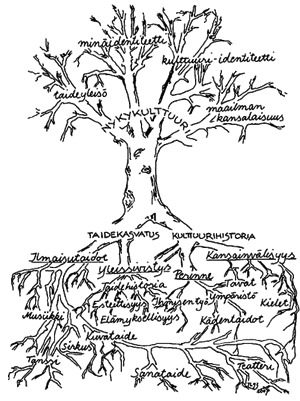 minäidentiteetti
kulttuuri-identiteetti
taideyleisö
NYKYKULTTUURI
maailman
kansalaisuus
TAIDEKASVATUS KULTTUURIHISTORIA
Ilmaisutaidot
Yleissivistys
Kansainvälisyys
Perinne
Taidehistoria
Tavat
Esteettisyys
Ihmisen työ
Ympäristö
Kielet
Musiikki
Elämyksellisyys
Kädentaidot
Kuvataide
Sirkus
Tanssi
Sanataide
Teatteri